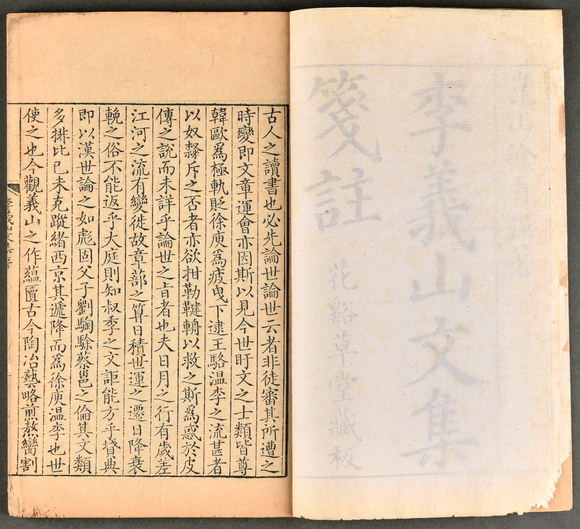 崑山
李義山文集
箋註
花谿草堂藏板
古人之讀書也必先論世論世云者非徒審其所遭之
時變即文章運會亦因斯以見今世盱文之士類皆尊
韓歐爲極軌貶徐庾爲疲曳下逮王駱溫李之流甚者
以奴隸斥之否者亦欲拑勒鞬輈以救之斯爲惑於皮
傳之說而未詳乎論世之旨者也夫日月之行有歲差
江河之流有變徙故章蔀之算日積世運之遷日降衰
輓之俗不能返乎大庭則知叔季之文詎能方乎聱典
即以漢世論之如彪固父子劉騊駼蔡邕之倫其文類
多排比已未克蹤緒西京其遞降而爲徐庾溫李也世
使之也今觀義山之作蘊匱古今陶冶埶略煎熬臠割